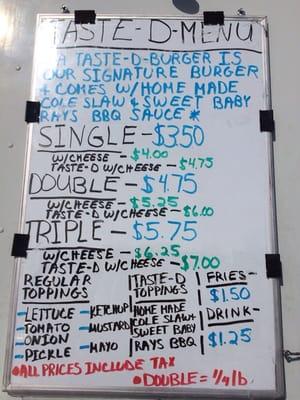 TASTE-D-MENU
A TASTE-D-BURGER IS
OUR SIGNATURE BURGER
+ COMES W/HOME MADE
COLE SLAW & SWEET BABY
RAYS BBQ SAUCE *
SINGLE - $3.50
W/CHEESE - $4.00
TASTE-D W/CHEESE - $4.75
DOUBLE - $4.75
W/CHEESE - $5.25
TASTE-D W/CHEESE - $6.00
TRIPLE - $5.75
W/CHEESE - $6.25
TASTE-D W/CHEESE - $7.00
REGULAR
TOPPINGS
- LETTUCE - KETCHUP
- TOMATO - MUSTARD
- ONION
- PICKLE - MAYO
TASTE-D
TOPPINGS
HOME MADE
COLE SLAW+
SWEET BABY
RAYS BBQ
FRIES-
$1.50
DRINK-
$1.25
• ALL PRICES INCLUDE TAX
• DOUBLE = 1/4 lb